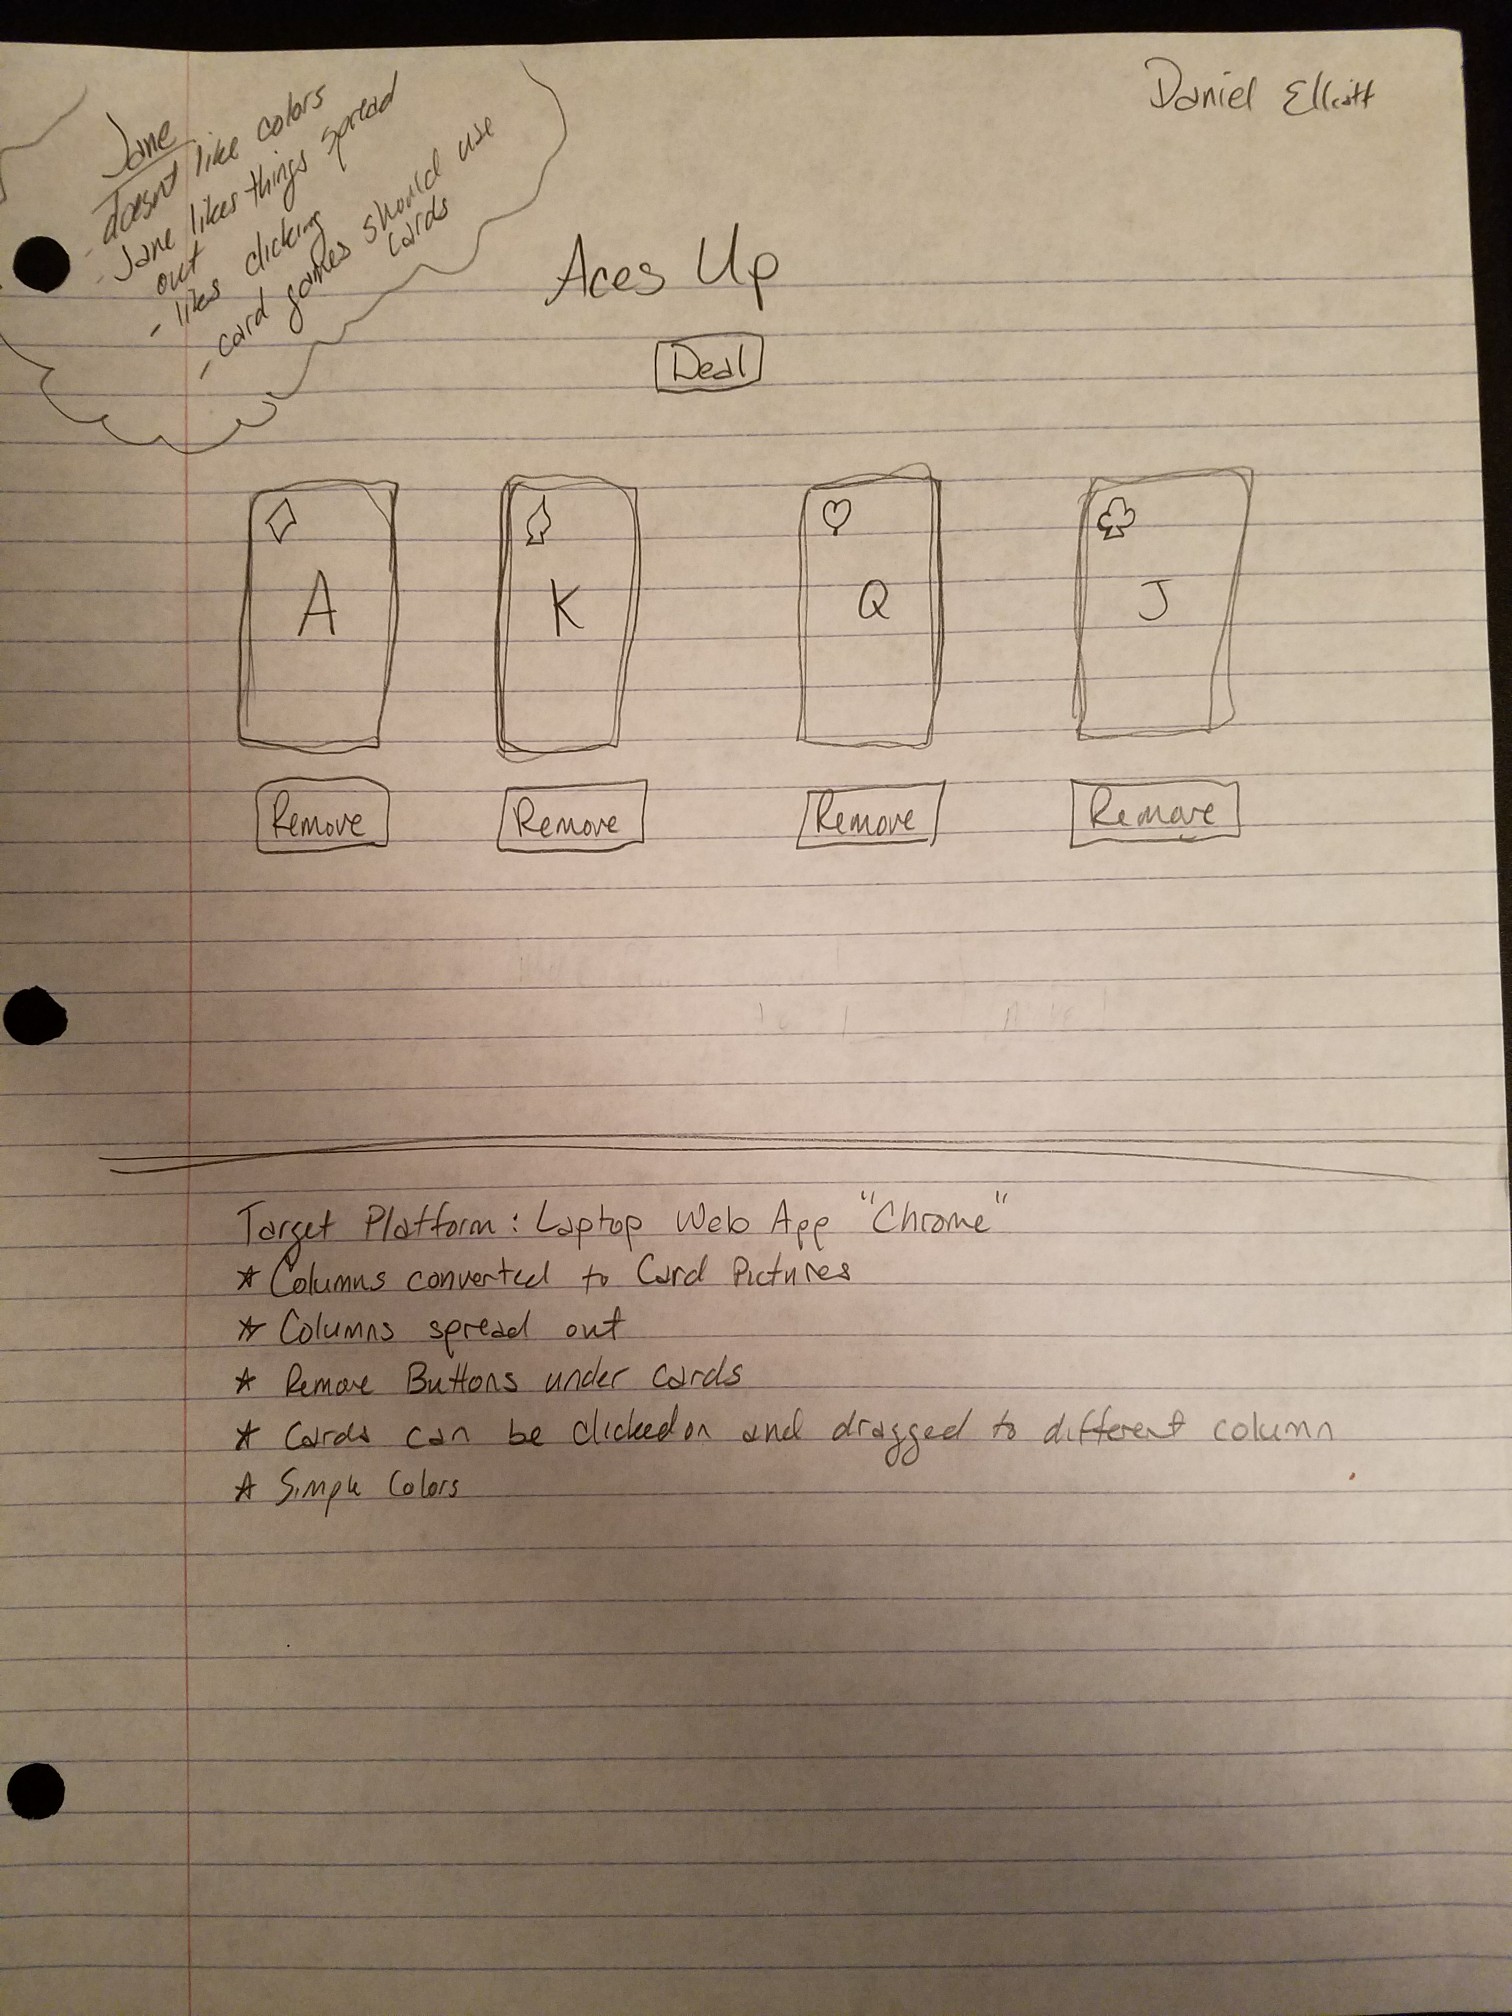 Daniel Elliott
Jane
- doesnt like colors
- Jane likes things spread
out
- likes clicking
- card games should use
cards
Aces Up
Deal
A K Q J
Remove Remove Remove Remove
Target Platform : Laptop Web App "Chrome"
* Columns converted to Card Pictures
* Columns spread out
* Remove Buttons under cards
* Cards can be clicked on and dragged to different column
* Simple Colors